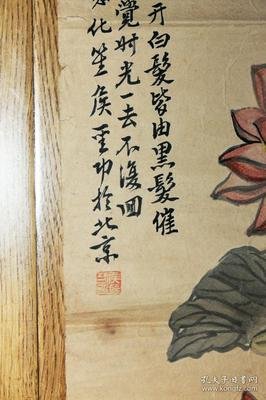 开白髮皆由黑髮催
覺时光一去不復回
化笙侯聖功於北京
孔夫子旧书网